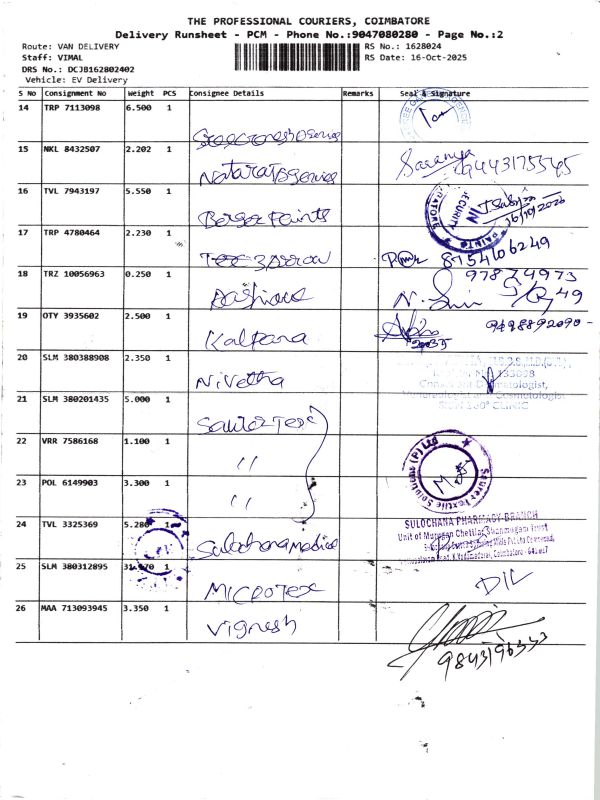 THE PROFESSIONAL COURIERS, COIMBATORE
Delivery Runsheet - PCM - Phone No.:9047080280 - Page No.:2
Route: VAN DELIVERY
RS No.: 1628024
Staff: VIMAL
RS Date: 16-Oct-2025
DRS No.: DCJB162802402
Vehicle: EV Delivery
S No Consignment No Weight PCS Consignee Details Remarks Seal & Signature
14 TRP 7113098 6.500 1
15 NKL 8432507 2.202 1 Saranya 9443175545
16 TVL 7943197 5.550 1 Berger Paints
SECURITY
PAINTS
17 TRP 4780464 2.230 1 8754106249
18 TRZ 10056963 0.250 1
19 OTY 3935602 2.500 1 Kalpana
20 SLM 380388908 2.350 1 Nivetha
21 SLM 380201435 5.000 1
22 VRR 7586168 1.100 1 〃
23 POL 6149903 3.300 1 〃
Saurer Textile Solutions (P) Ltd
24 TVL 3325369 1 Sulochana medical
SULOCHANA PHARMACY-BRANCH
Unit of Murugan Chettiar
Coimbatore - 641 017
25 SLM 380312895 1 MICROTEX
26 MAA 713093945 3.350 1 Vignesh 9843196333